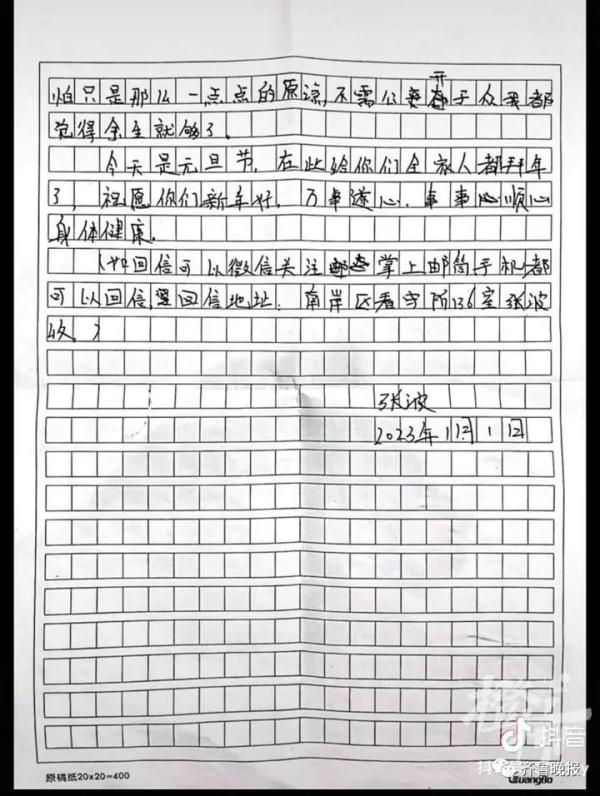 怕只是那么一点点的原谅,不需公开于众我都
觉得余生就够了.
今天是元旦节,在此给你们全家人都拜年
了,祝愿你们新年好,万事遂心,事事顺心
身体健康.
(如回信可以微信关注掌上邮筒手机都
可以回信,回信地址:南岸区看守所136室张波
收.)
张波
2023年1月1日
抖音
齐鲁晚报
原稿纸20×20=400
GuangBo